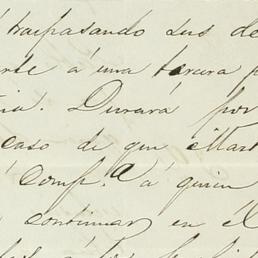 traspasando sus de
arse á una tercera p
cia. Durará por
caso de que Mart
Comp.a á quien
continuar en él